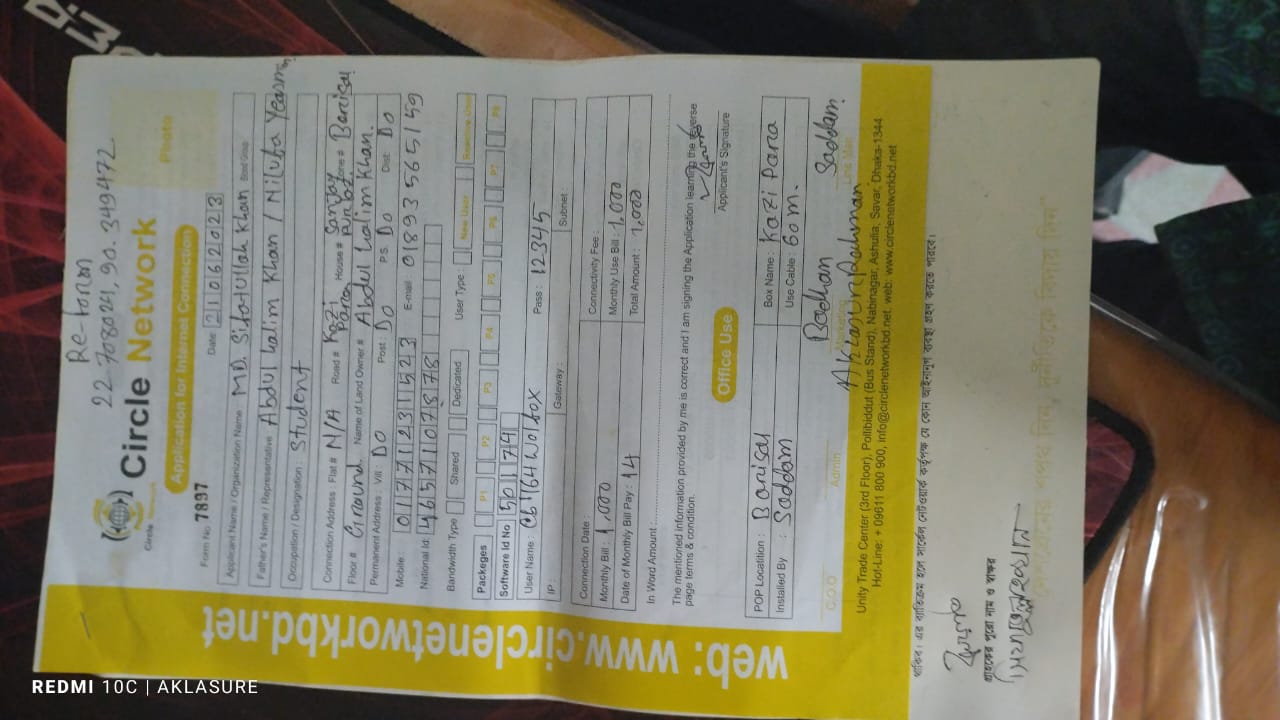 Re-taron
22.708024, 90.349472
Circle Network
Circle Network
Photo
Application for Internet Connection
Form No 7897
Date: 21062023
Applicant Name / Organization Name: MD. Sifatullah Khan
Father's Name / Representative: Abdul halim Khan / Nilufa Yeasmin
Occupation / Designation: Student
Connection Address: Flat # N/A Road # Kazi Para House # Zone # Barisal
Floor # Ground Name of Land Owner # Abdul halim Khan.
Permanent Address: Vill: DO Post: DO P.S: DO Dist: DO
Mobile: 01771231523 E-mail: 01893565159
National Id: 4657107878
Bandwidth Type Shared Dedicated User Type: New User
Packeges P1 P2 P3 P4 P5 P6 P7 P8
Software Id No 50174
User Name: Pass: 12345
IP: Gateway: Subnet:
Connection Date: Connectivity Fee:
Monthly Bill: 1,000 Monthly Use Bill: 1,000
Date of Monthly Bill Pay: 14 Total Amount: 1,000
In Word Amount:
The mentioned information provided by me is correct and i am signing the Application learning the reverse
page terms & condition.
Applicant's Signature
Office Use
POP Locatition: Barisal Box Name: Kazi Para
Installed By: Saddam Use Cable: 60 m.
Badhan Saddam.
C.O.O Admin Marketing Line Man
Aklasur Rahman
Unity Trade Center (3rd Floor), Pollibiddut (Bus Stand), Nabinagar, Ashulia, Savar, Dhaka-1344
Hot-Line: + 09611 800 900, info@circlenetworkbd.net. web: www.circlenetworkbd.net
web: www.circlenetworkbd.net
থাকিব। এর ব্যতিক্রম হলে সার্কেল নেটওয়ার্ক কর্তৃপক্ষ যে কোন আইনানুগ ব্যবস্থা গ্রহণ করতে পারবে।
গ্রাহকের পুরো নাম ও স্বাক্ষর
REDMI 10C | AKLASURE